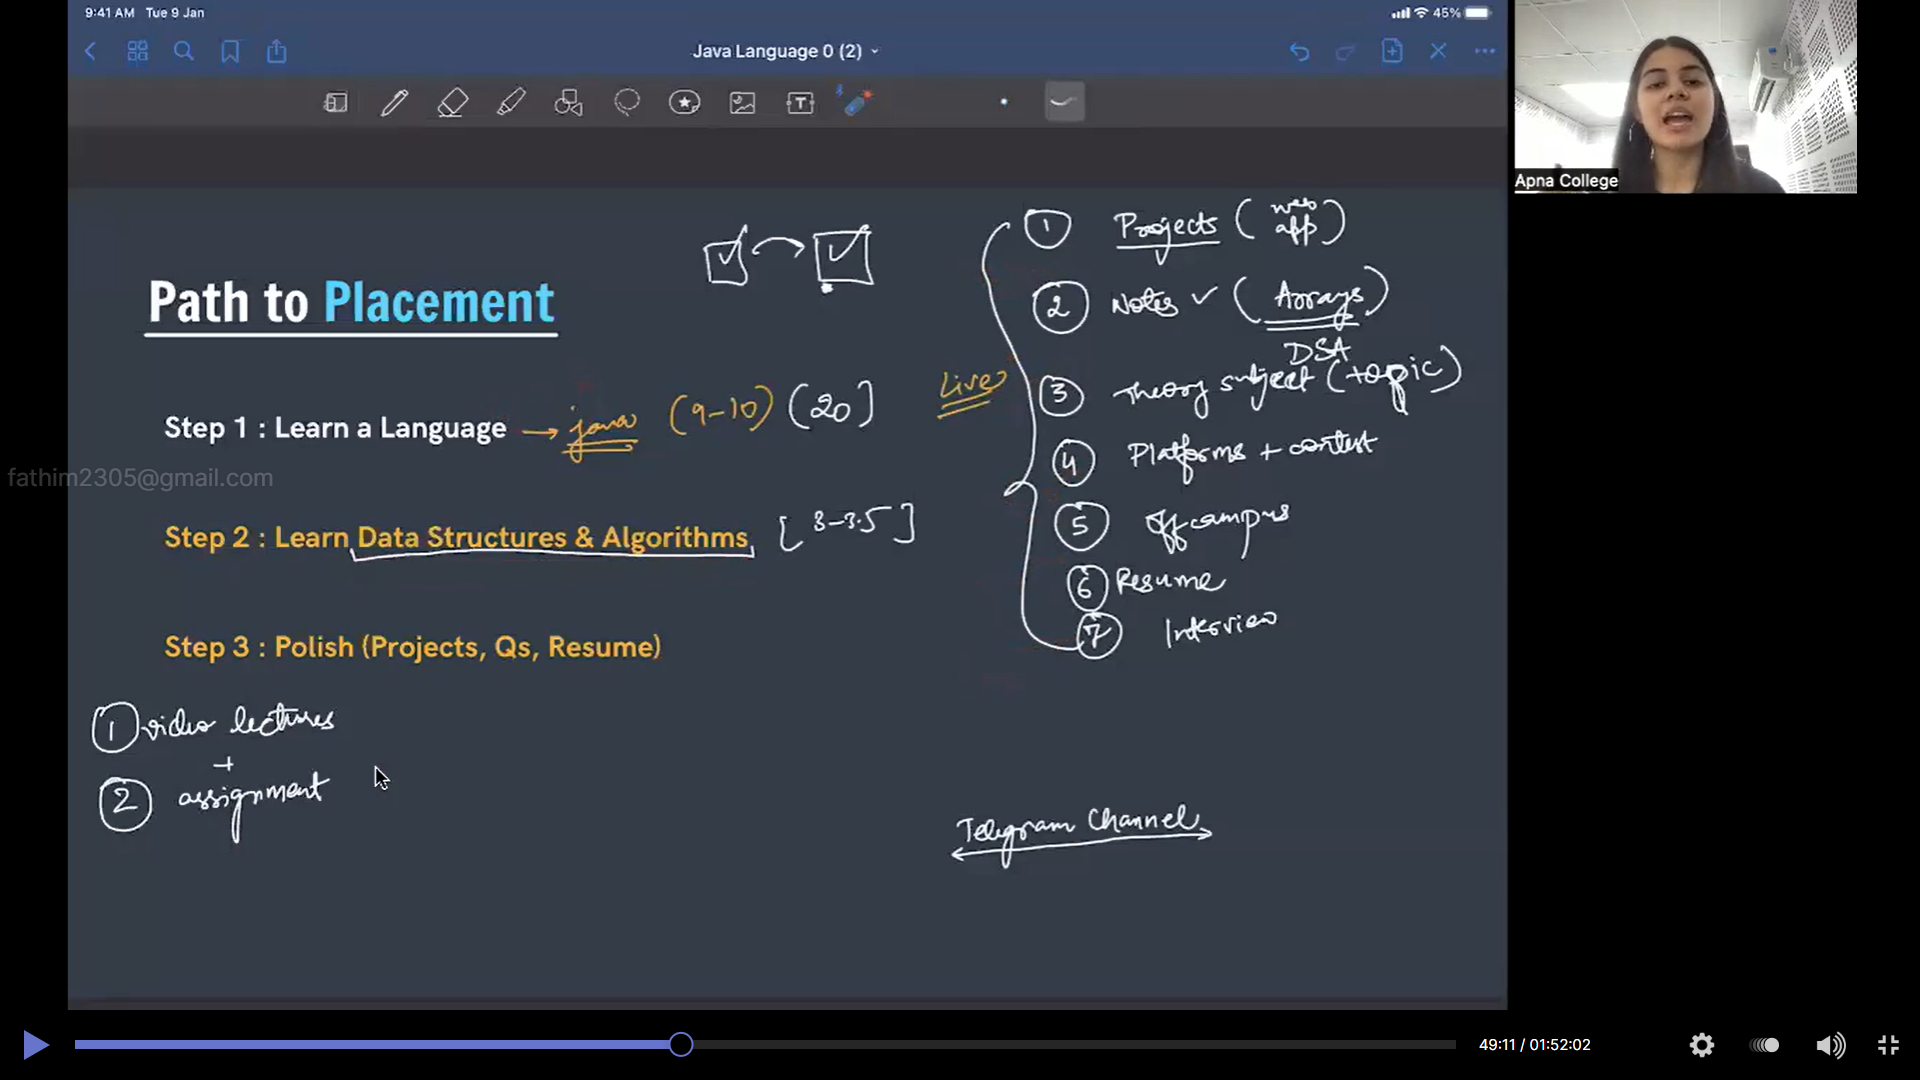 9:41 AM Tue 9 Jan
45%
Java Language 0 (2)
Apna College
Path to Placement
Step 1 : Learn a Language → java (9-10) (20]
fathim2305@gmail.com
Step 2 : Learn Data Structures & Algorithms [3-3.5]
Step 3 : Polish (Projects, Qs, Resume)
1 video lectures
+
2 assignment
Live
1 Projects (web app)
2 Notes ✓ (Arrays)
DSA
3 Theory subject (topic)
4 Platforms + contest
5 Off campus
6 Resume
7 Interview
Telegram Channel
49:11 / 01:52:02